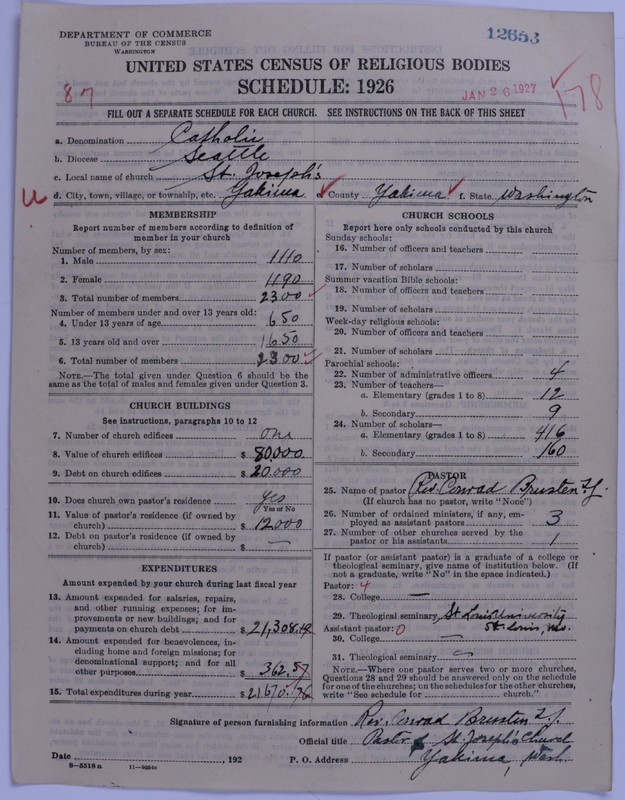 DEPARTMENT OF COMMERCE
BUREAU OF THE CENSUS
WASHINGTON
12653
UNITED STATES CENSUS OF RELIGIOUS BODIES
SCHEDULE: 1926
87
JAN 26 1927
178
FILL OUT A SEPARATE SCHEDULE FOR EACH CHURCH. SEE INSTRUCTIONS ON THE BACK OF THIS SHEET
a. Denomination Catholic
b. Diocese Seattle
c. Local name of church St. Joseph's
d. City, town, village, or township, etc. Yakima County Yakima f. State Washington
MEMBERSHIP
Report number of members according to definition of
member in your church
Number of members, by sex:
1. Male 1110
2. Female 1190
3. Total number of members 2300
Number of members under and over 13 years old:
4. Under 13 years of age 650
5. 13 years old and over 1650
6. Total number of members 2300
NOTE.—The total given under Question 6 should be
same as the total of males and females given under Question 3.
CHURCH BUILDINGS
See instructions, paragraphs 10 to 12
7. Number of church edifices one
8. Value of church edifices $ 80,000
9. Debt on church edifices $ 20.000
10. Does church own pastor's residence yes
Yes or No
11. Value of pastor's residence (if owned by
church) $ 12,000
12. Debt on pastor's residence (if owned by
church) $ —
EXPENDITURES
Amount expended by your church during last fiscal year
13. Amount expended for salaries, repairs,
and other running expenses; for im-
provements or new buildings; and for
payments on church debt $ 21,308.19
14. Amount expended for benevolences, in-
cluding home and foreign missions; for
denominational support; and for all
other purposes $ 362.57
15. Total expenditures during year $ 21670.76
CHURCH SCHOOLS
Report here only schools conducted by this church
Sunday schools:
16. Number of officers and teachers
17. Number of scholars
Summer vacation Bible schools:
18. Number of officers and teachers
19. Number of scholars
Week-day religious schools:
20. Number of officers and teachers
21. Number of scholars
Parochial schools:
22. Number of administrative officers 4
23. Number of teachers—
a. Elementary (grades 1 to 8) 12
b. Secondary 9
24. Number of scholars—
a. Elementary (grades 1 to 8) 416
b. Secondary 160
PASTOR
25. Name of pastor Rev. Conrad Brusten S.J.
(If church has no pastor, write "None")
26. Number of ordained ministers, if any, em-
ployed as assistant pastors 3
27. Number of other churches served by the
pastor or his assistants 1
If pastor (or assistant pastor) is a graduate of a college or
theological seminary, give name of institution below. (If
not a graduate, write "No" in the space indicated.)
Pastor: 4
28. College —
29. Theological seminary St Louis University
Assistant pastor: 0 St. Louis, Mo.
30. College —
31. Theological seminary —
NOTE.—Where one pastor serves two or more churches,
Questions 28 and 29 should be answered only on the schedule
for one of the churches; on the schedules for the other churches,
write "See schedule for church."
Signature of person furnishing information Rev. Conrad Brusten S.J.
Official title Pastor of St. Joseph's Church
Date , 192 P. O. Address Yakima, Wash.
8—5518 a